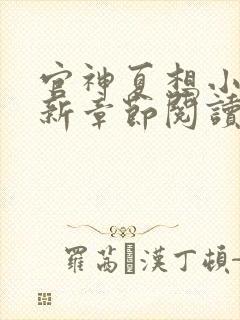 官神夏想小
新章節閱讀
羅茜·漢丁頓-